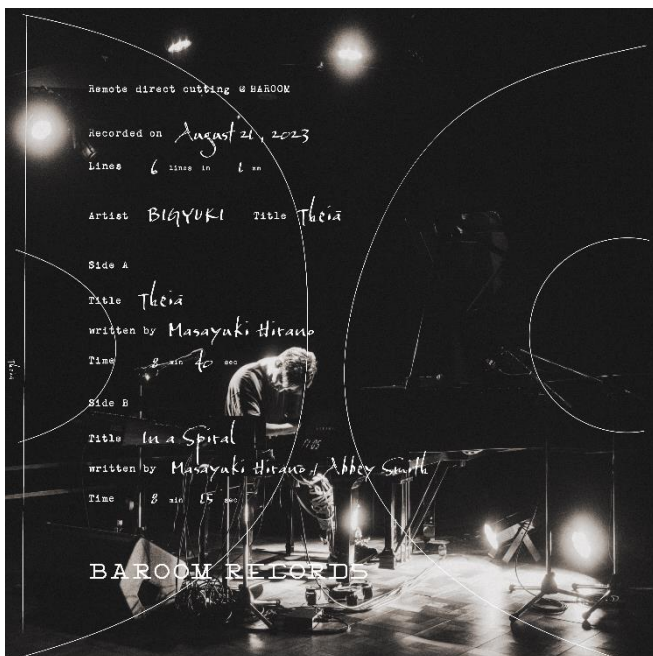 Remote direct cutting @ BAROOM
Recorded on August 21, 2023
Lines 6 lines in 1 mm
Artist BIGYUKI Title Theia
Side A
Title Theia
written by Masayuki Hirano
Time 8 min 40 sec
Side B
Title In a Spiral
written by Masayuki Hirano / Abbey Smith
Time 8 min 15 sec
BAROOM RECORDS
Theia